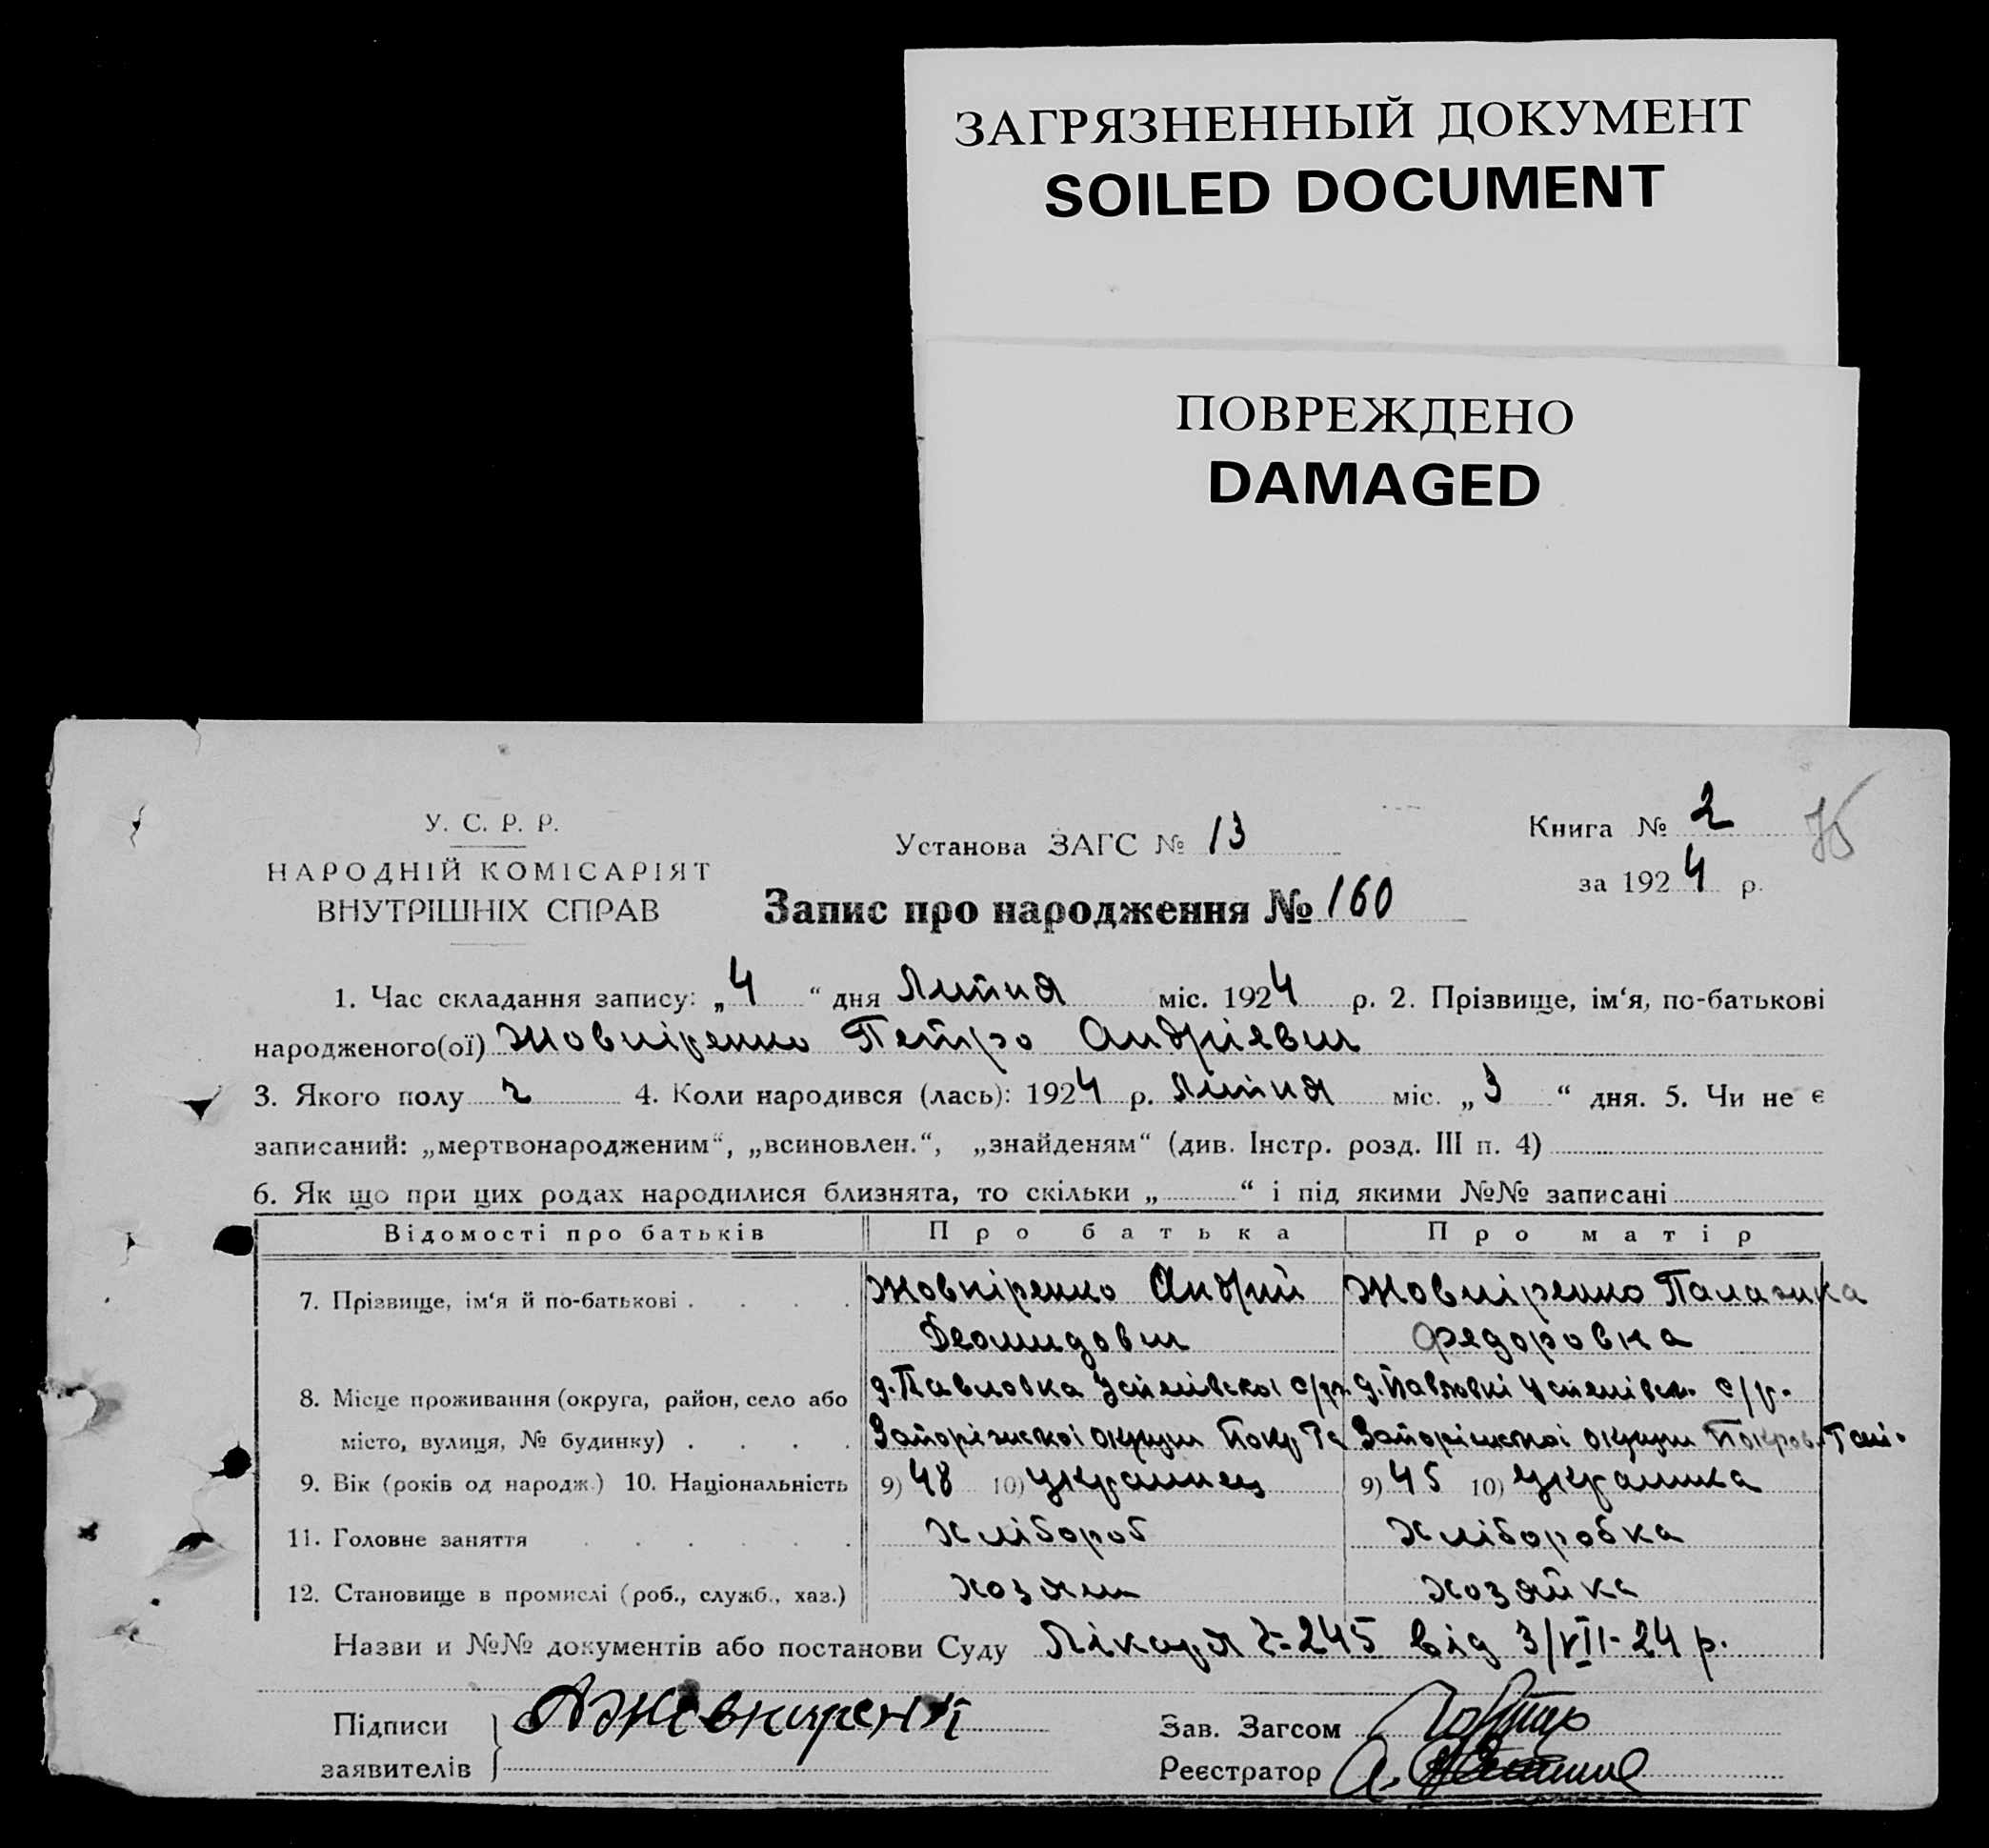 ЗАГРЯЗНЕННЫЙ ДОКУМЕНТ
SOILED DOCUMENT
ПОВРЕЖДЕНО
DAMAGED
У. С. Р. Р.
НАРОДНІЙ КОМІСАРІЯТ
ВНУТРІШНІХ СПРАВ
Установа ЗАГС № 13
Книга № 2
за 1924 р.
Запис про народження № 160
1. Час складання запису: „4“ дня Липня міс. 1924 р. 2. Прізвище, ім‘я, по-батькові
народженого(ої) Жовніренко Петро Андрієвич
3. Якого полу ч 4. Коли народився (лась): 1924 р. Липня міс. „3“ дня. 5. Чи не є
записаний: „мертвонародженим“, „всиновлен.“, „знайденям“ (див. Інстр. розд. III п. 4)
6. Як що при цих родах народилися близнята, то скільки „ “ і під якими №№ записані
Відомості про батьків Про батька Про матір
7. Прізвище, ім‘я й по-батькові Жовніренко Андрий Жовніренко Палажка
Федоровка
8. Місце проживання (округа, район, село або д. Павловка Успенівскоі с/р д. Павловкі Успенівск. с/р.
місто, вулиця, № будинку) Запоріжскоі округи Покр Запоріжскоі округи Покров.
9. Вік (років од народж.) 10. Національність 9) 48 10) українец 9) 45 10) українка
11. Головне заняття Хлібороб Хліборобка
12. Становище в промислі (роб., служб., хаз.) хозяин хозяйка
Назви и №№ документів або постанови Суду Лікаря 245 від 3/VII-24 р.
Підписи
заявителів
Зав. Загсом
Реєстратор